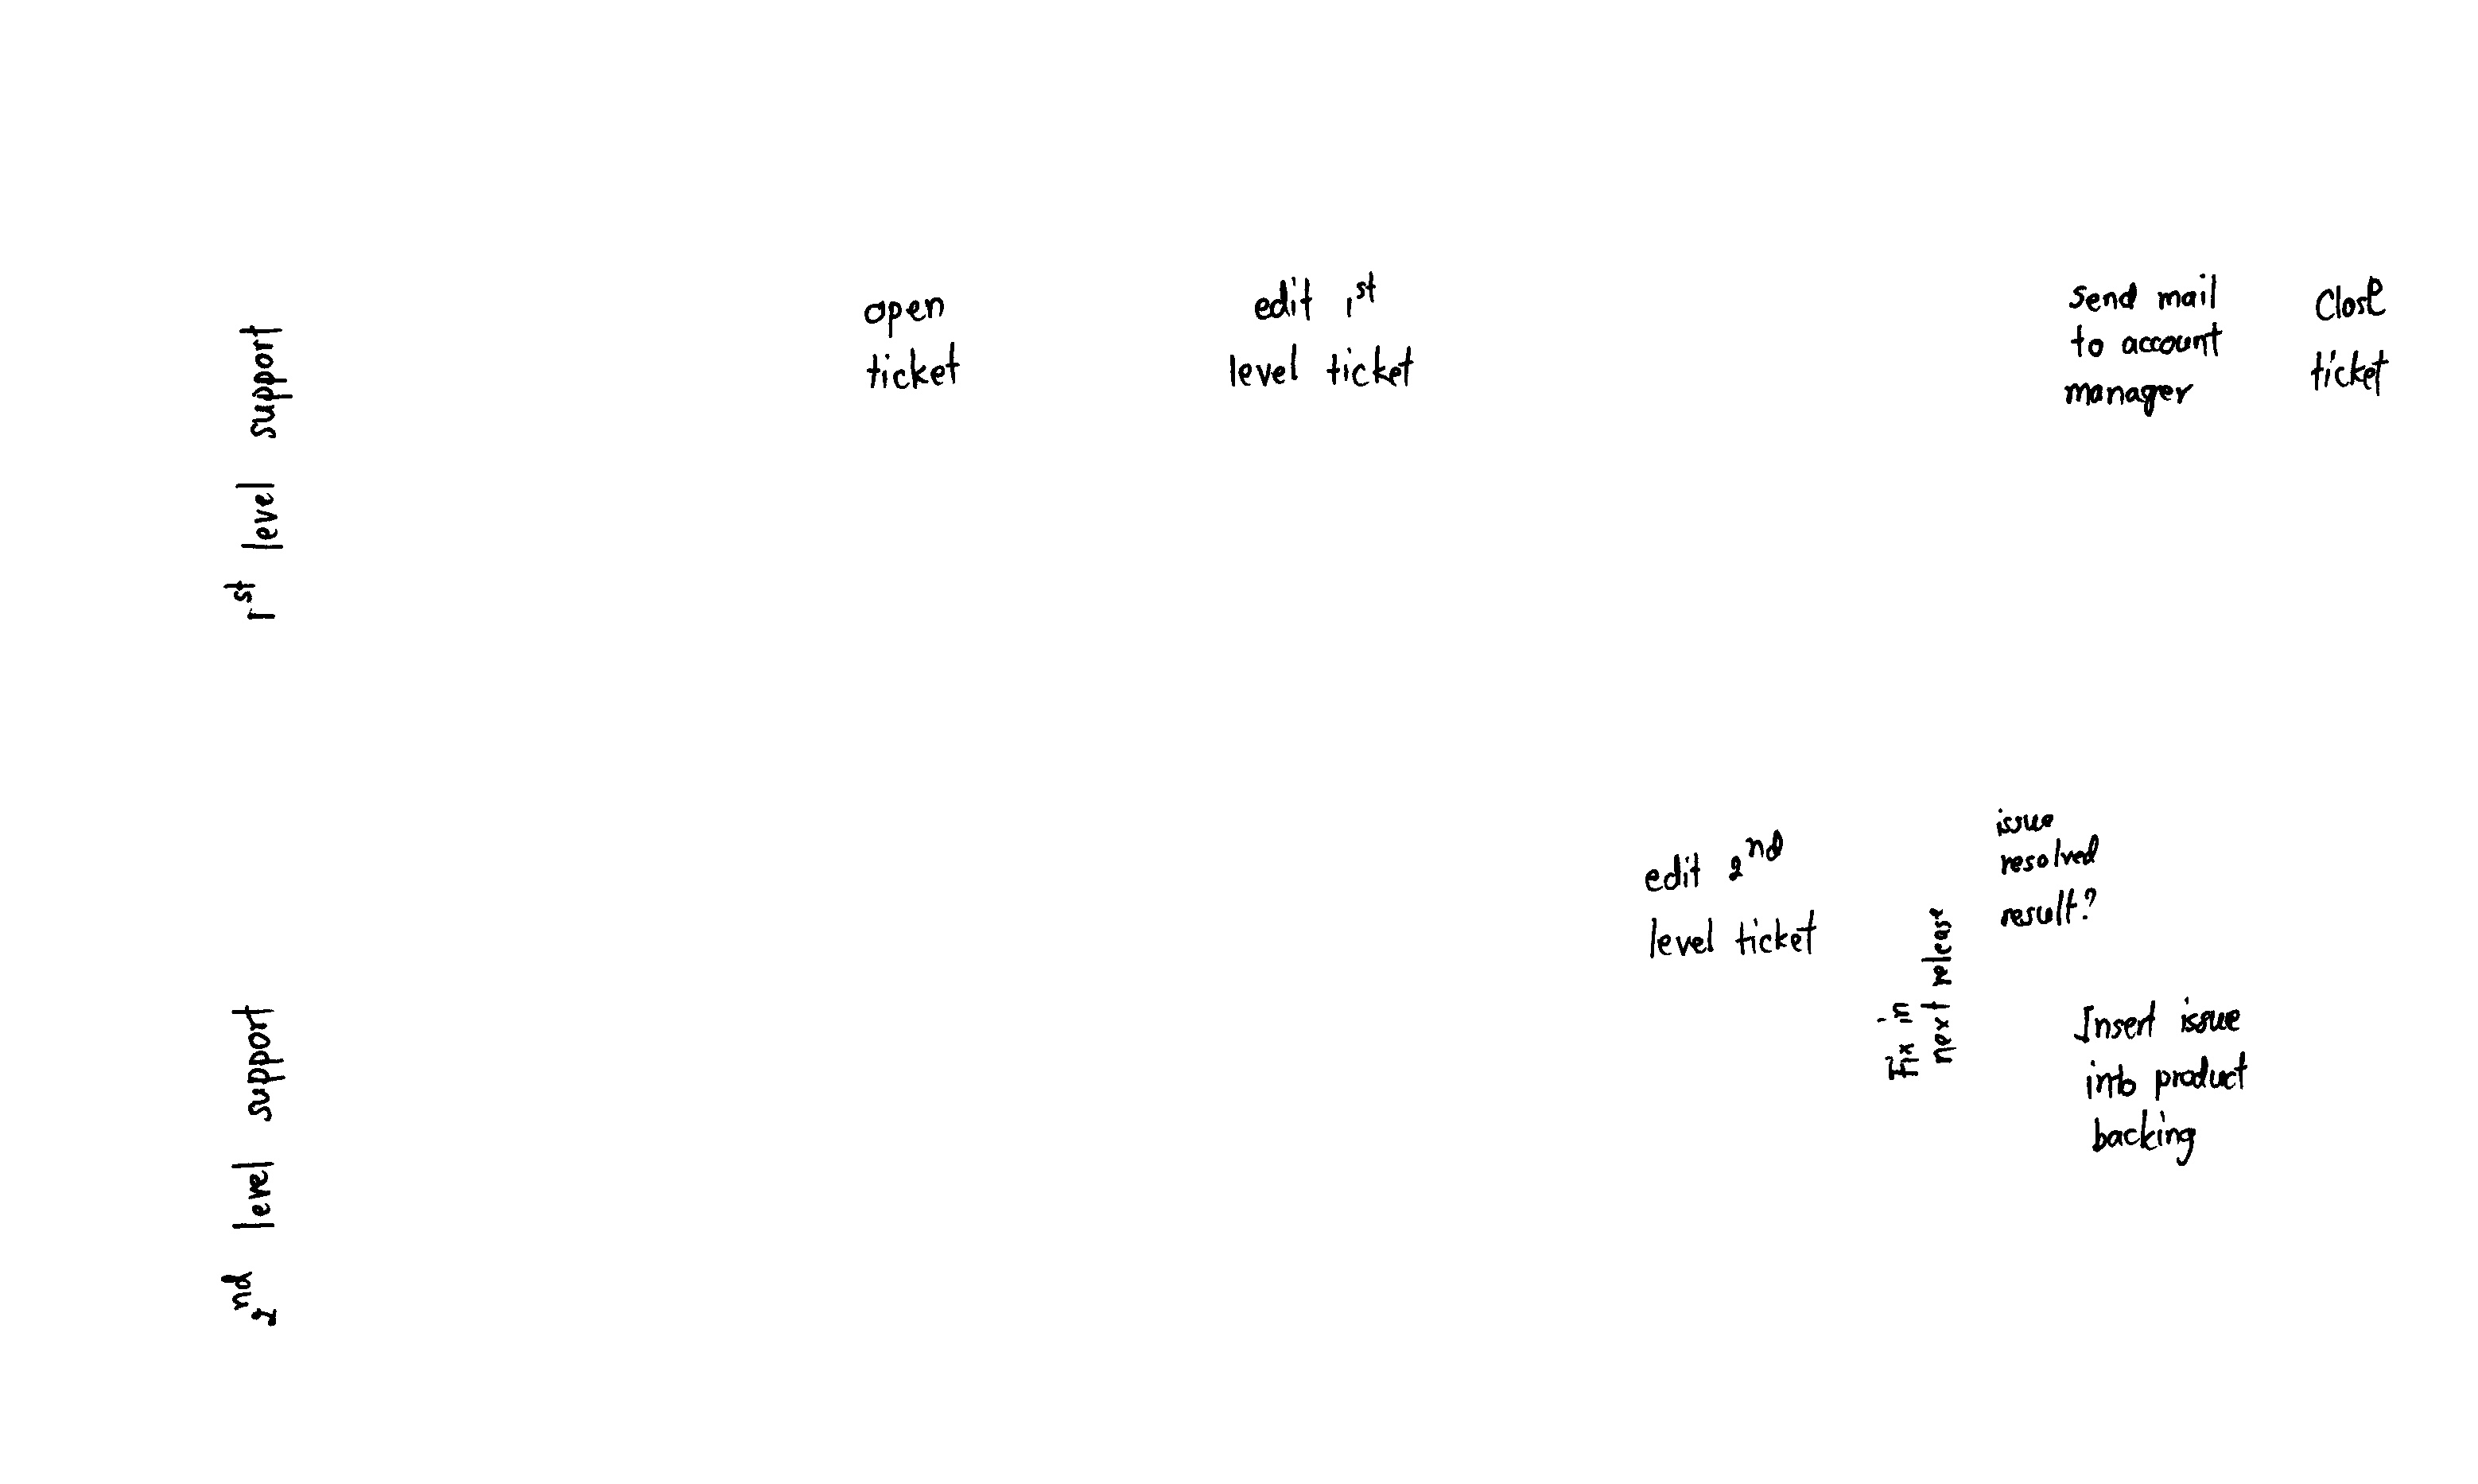 1st level support
open
ticket
edit 1st
level ticket
send mail
to account
manager
Close
ticket
2nd level support
edit 2nd
level ticket
Fix in
next release
issue
resolved
result?
Insert issue
into product
backing